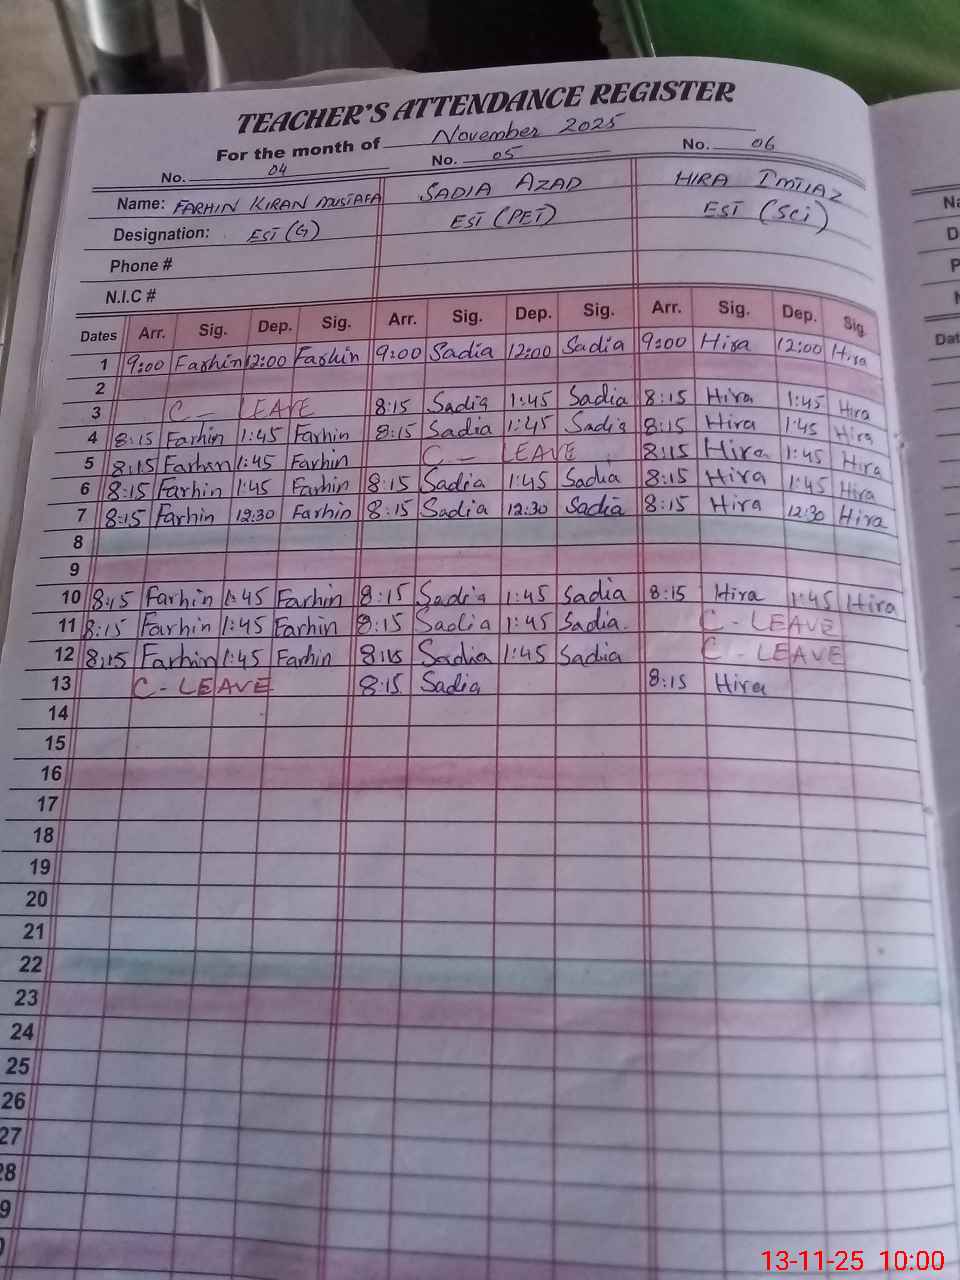 TEACHER'S ATTENDANCE REGISTER
For the month of November 2025
No. 04 No. 05 No. 06
Name: FARHIN KIRAN MUSTAFA SADIA AZAD HIRA IMTIAZ
Designation: EST (G) EST (PET) EST (Sci)
Phone #
N.I.C #
Dates Arr. Sig. Dep. Sig. Arr. Sig. Dep. Sig. Arr. Sig. Dep. Sig.
1 9:00 Farhin 12:00 Farhin 9:00 Sadia 12:00 Sadia 9:00 Hira 12:00 Hira
2
3 C - LEAVE 8:15 Sadia 1:45 Sadia 8:15 Hira 1:45 Hira
4 8:15 Farhin 1:45 Farhin 8:15 Sadia 1:45 Sadia 8:15 Hira 1:45 Hira
5 8:15 Farhin 1:45 Farhin C - LEAVE 8:15 Hira 1:45 Hira
6 8:15 Farhin 1:45 Farhin 8:15 Sadia 1:45 Sadia 8:15 Hira 1:45 Hira
7 8:15 Farhin 12:30 Farhin 8:15 Sadia 12:30 Sadia 8:15 Hira 12:30 Hira
8
9
10 8:15 Farhin 1:45 Farhin 8:15 Sadia 1:45 Sadia 8:15 Hira 1:45 Hira
11 8:15 Farhin 1:45 Farhin 8:15 Sadia 1:45 Sadia. C - LEAVE
12 8:15 Farhin 1:45 Farhin 8:15 Sadia 1:45 Sadia C - LEAVE
13 C - LEAVE 8:15 Sadia 8:15 Hira
14
15
16
17
18
19
20
21
22
23
24
25
26
27
28
9
Na
D
P
N
Dat
13-11-25 10:00